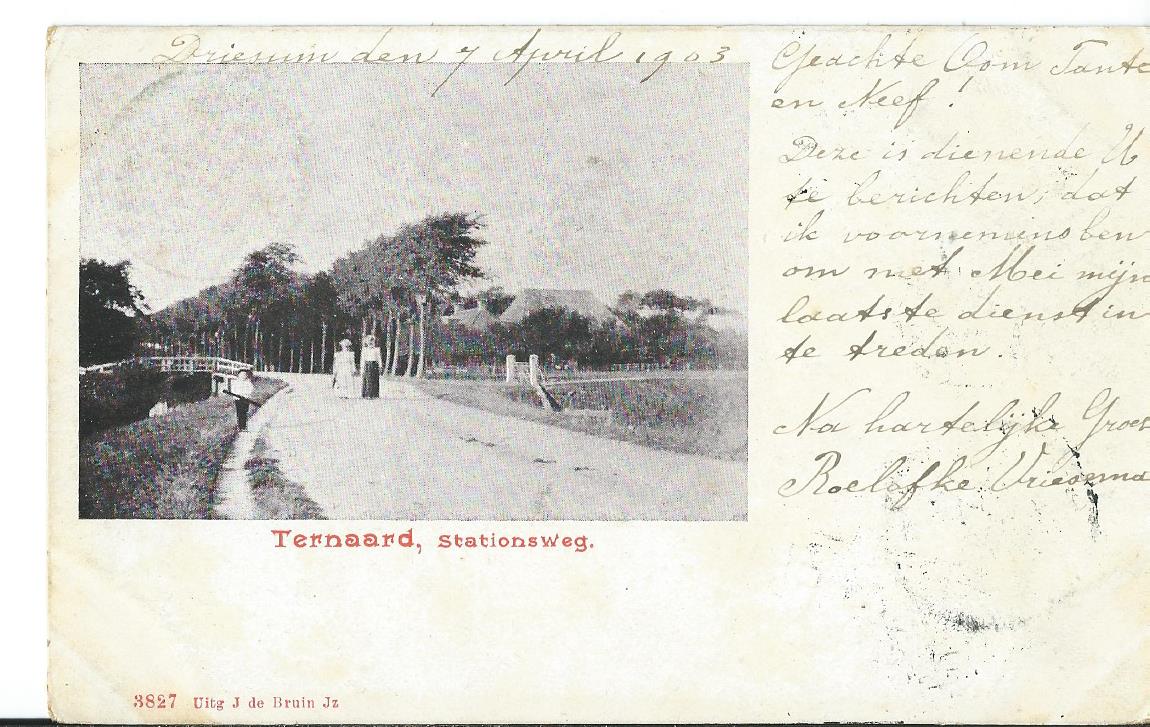 Driesum den 7 April 1903
Geachte Oom Tante
en Neef!
Deze is dienende U
te berichten, dat
ik voornemens ben
om met Mei mijn
laatste dienst in
te treden.
Na hartelijke Groet
Roelofke Vriesema
Ternaard, Stationsweg.
3827 Uitg J de Bruin Jz